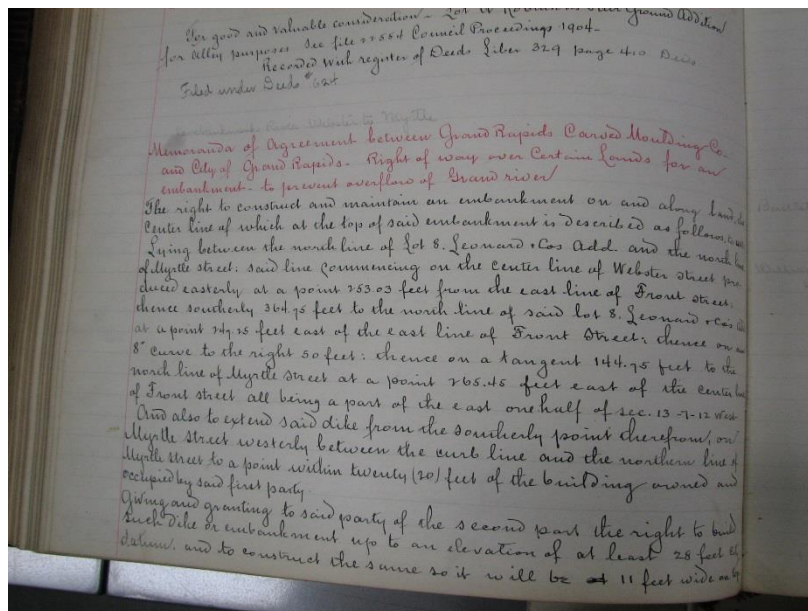 For good and valuable consideration - Lot W Robinsons Ground Addition
for alley purposes See file 22554 Council Proceedings 1904-
Recorded with register of Deeds Liber 329 page 410 Deeds
Filed under Deeds # 624
Webster to Myrtle
Memoranda of Agreement between Grand Rapids Carved Moulding Co.
and City of Grand Rapids - Right of way over Certain Lands for an
embankment - to prevent overflow of Grand river
The right to construct and maintain an embankment on and along land, the
Center line of which at the top of said embankment is described as follows, to wit:
Lying between the north line of Lot 8. Leonard & Cos Add. and the north line
of Myrtle street: said line commencing on the center line of Webster street pro
duced easterly at a point 253.03 feet from the east line of Front street;
thence southerly 364.75 feet to the north line of said lot 8. Leonard & Cos Add
at a point 247.25 feet east of the east line of Front Street; thence on an
8° curve to the right 50 feet: thence on a tangent 144.75 feet to the
north line of Myrtle street at a point 265.45 feet east of the center line
of Front street all being a part of the east one half of sec. 13-7-12 West
And also to extend said dike from the southerly point therefrom, on
Myrtle street westerly between the curb line and the northern line of
Myrtle street to a point within twenty (20) feet of the building owned and
occupied by said first party.
Giving and granting to said party of the second part the right to build
such dike or embankment up to an elevation of at least 28 feet City
datum, and to construct the same so it will be 11 feet wide on top